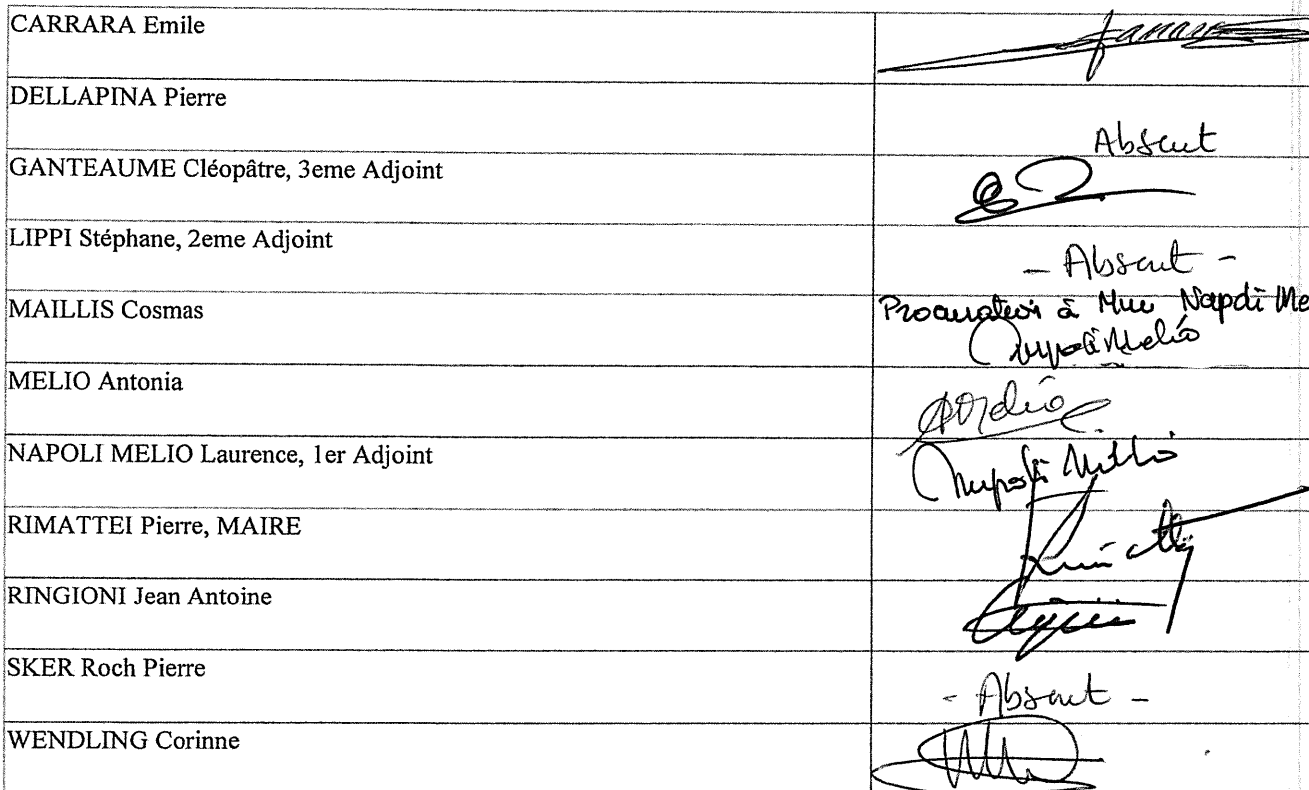 CARRARA Emile
DELLAPINA Pierre
Absent
GANTEAUME Cléopâtre, 3eme Adjoint
LIPPI Stéphane, 2eme Adjoint
- Absent -
MAILLIS Cosmas
Procuration à Mme Napoli Me
Napoli Melio
MELIO Antonia
AMelio
NAPOLI MELIO Laurence, 1er Adjoint
Napoli Melio
RIMATTEI Pierre, MAIRE
RINGIONI Jean Antoine
SKER Roch Pierre
- Absent -
WENDLING Corinne